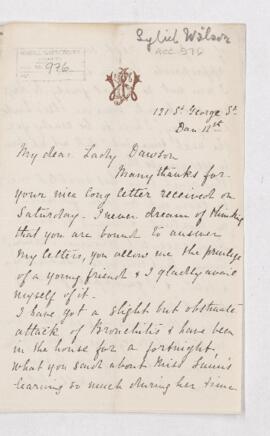 Wilson
ACC 976
976
My dear Lady Dawson
Many thanks for
your nice long letter received on
Saturday. I never dream of thinking
that you are bound to answer
my letters, you allow me the privilege
of a young friend & I gladly avail
myself of it.
I have got a slight but obstinate
attack of Bronchitis & have been
in the house for a fortnight.
What you said about Miss
learning so much during her time